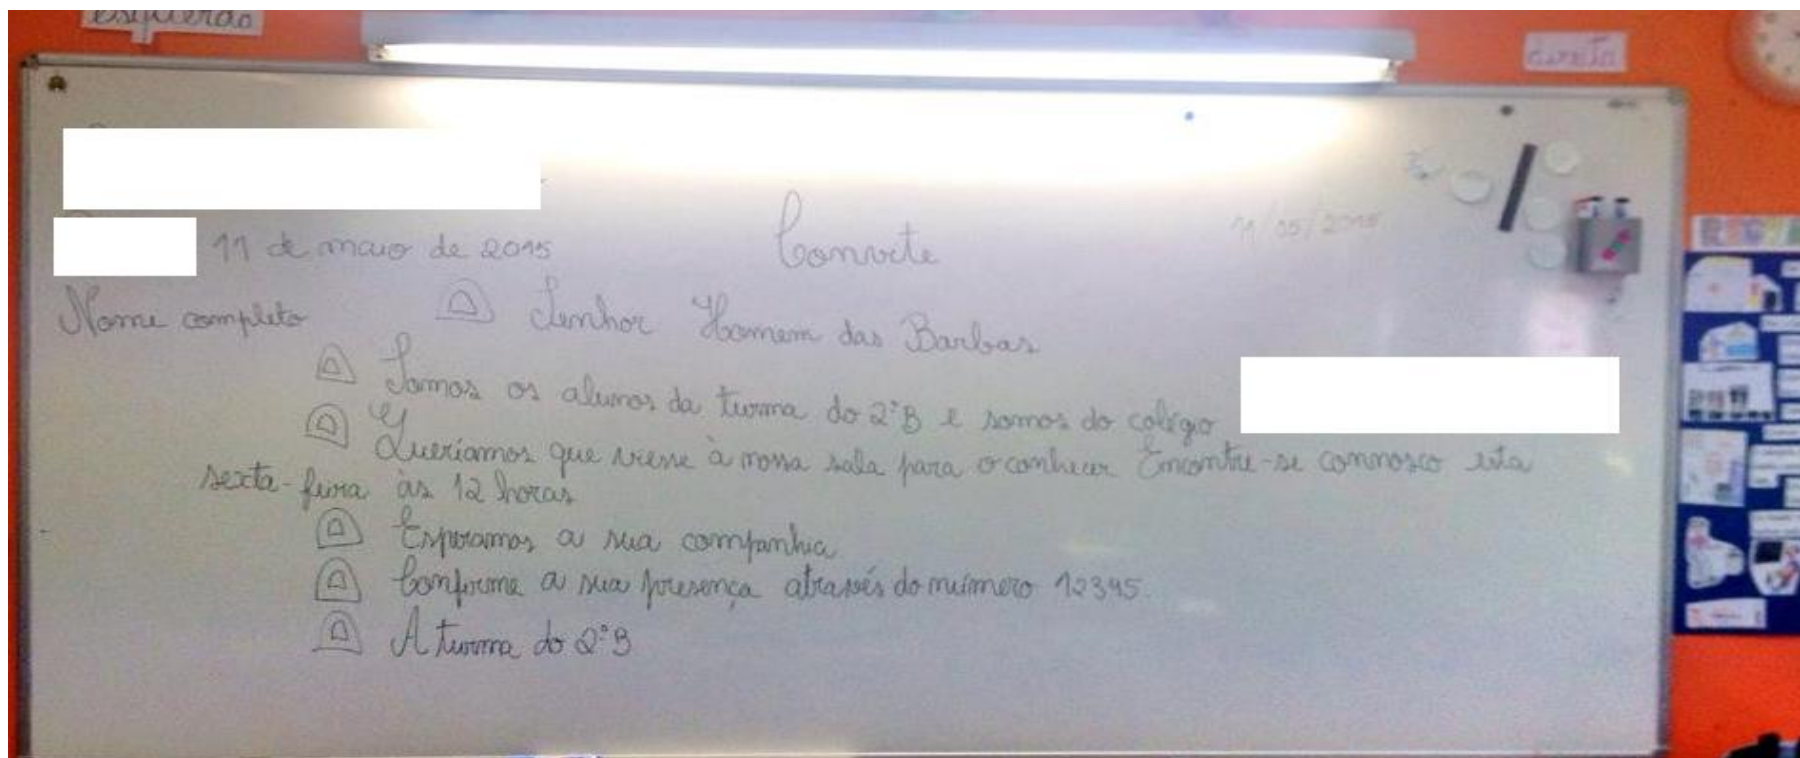 esquerdo
direita
11 de maio de 2015
Convite
11/05/2015
Nome completo
Senhor Homem das Barbas
Somos os alunos da turma do 2ºB e somos do colégio
Queríamos que viesse à nossa sala para o conhecer Encontre-se connosco esta
sexta-feira às 12 horas
Esperamos a sua companhia
Confirme a sua presença através do número 12345.
A turma do 2ºB